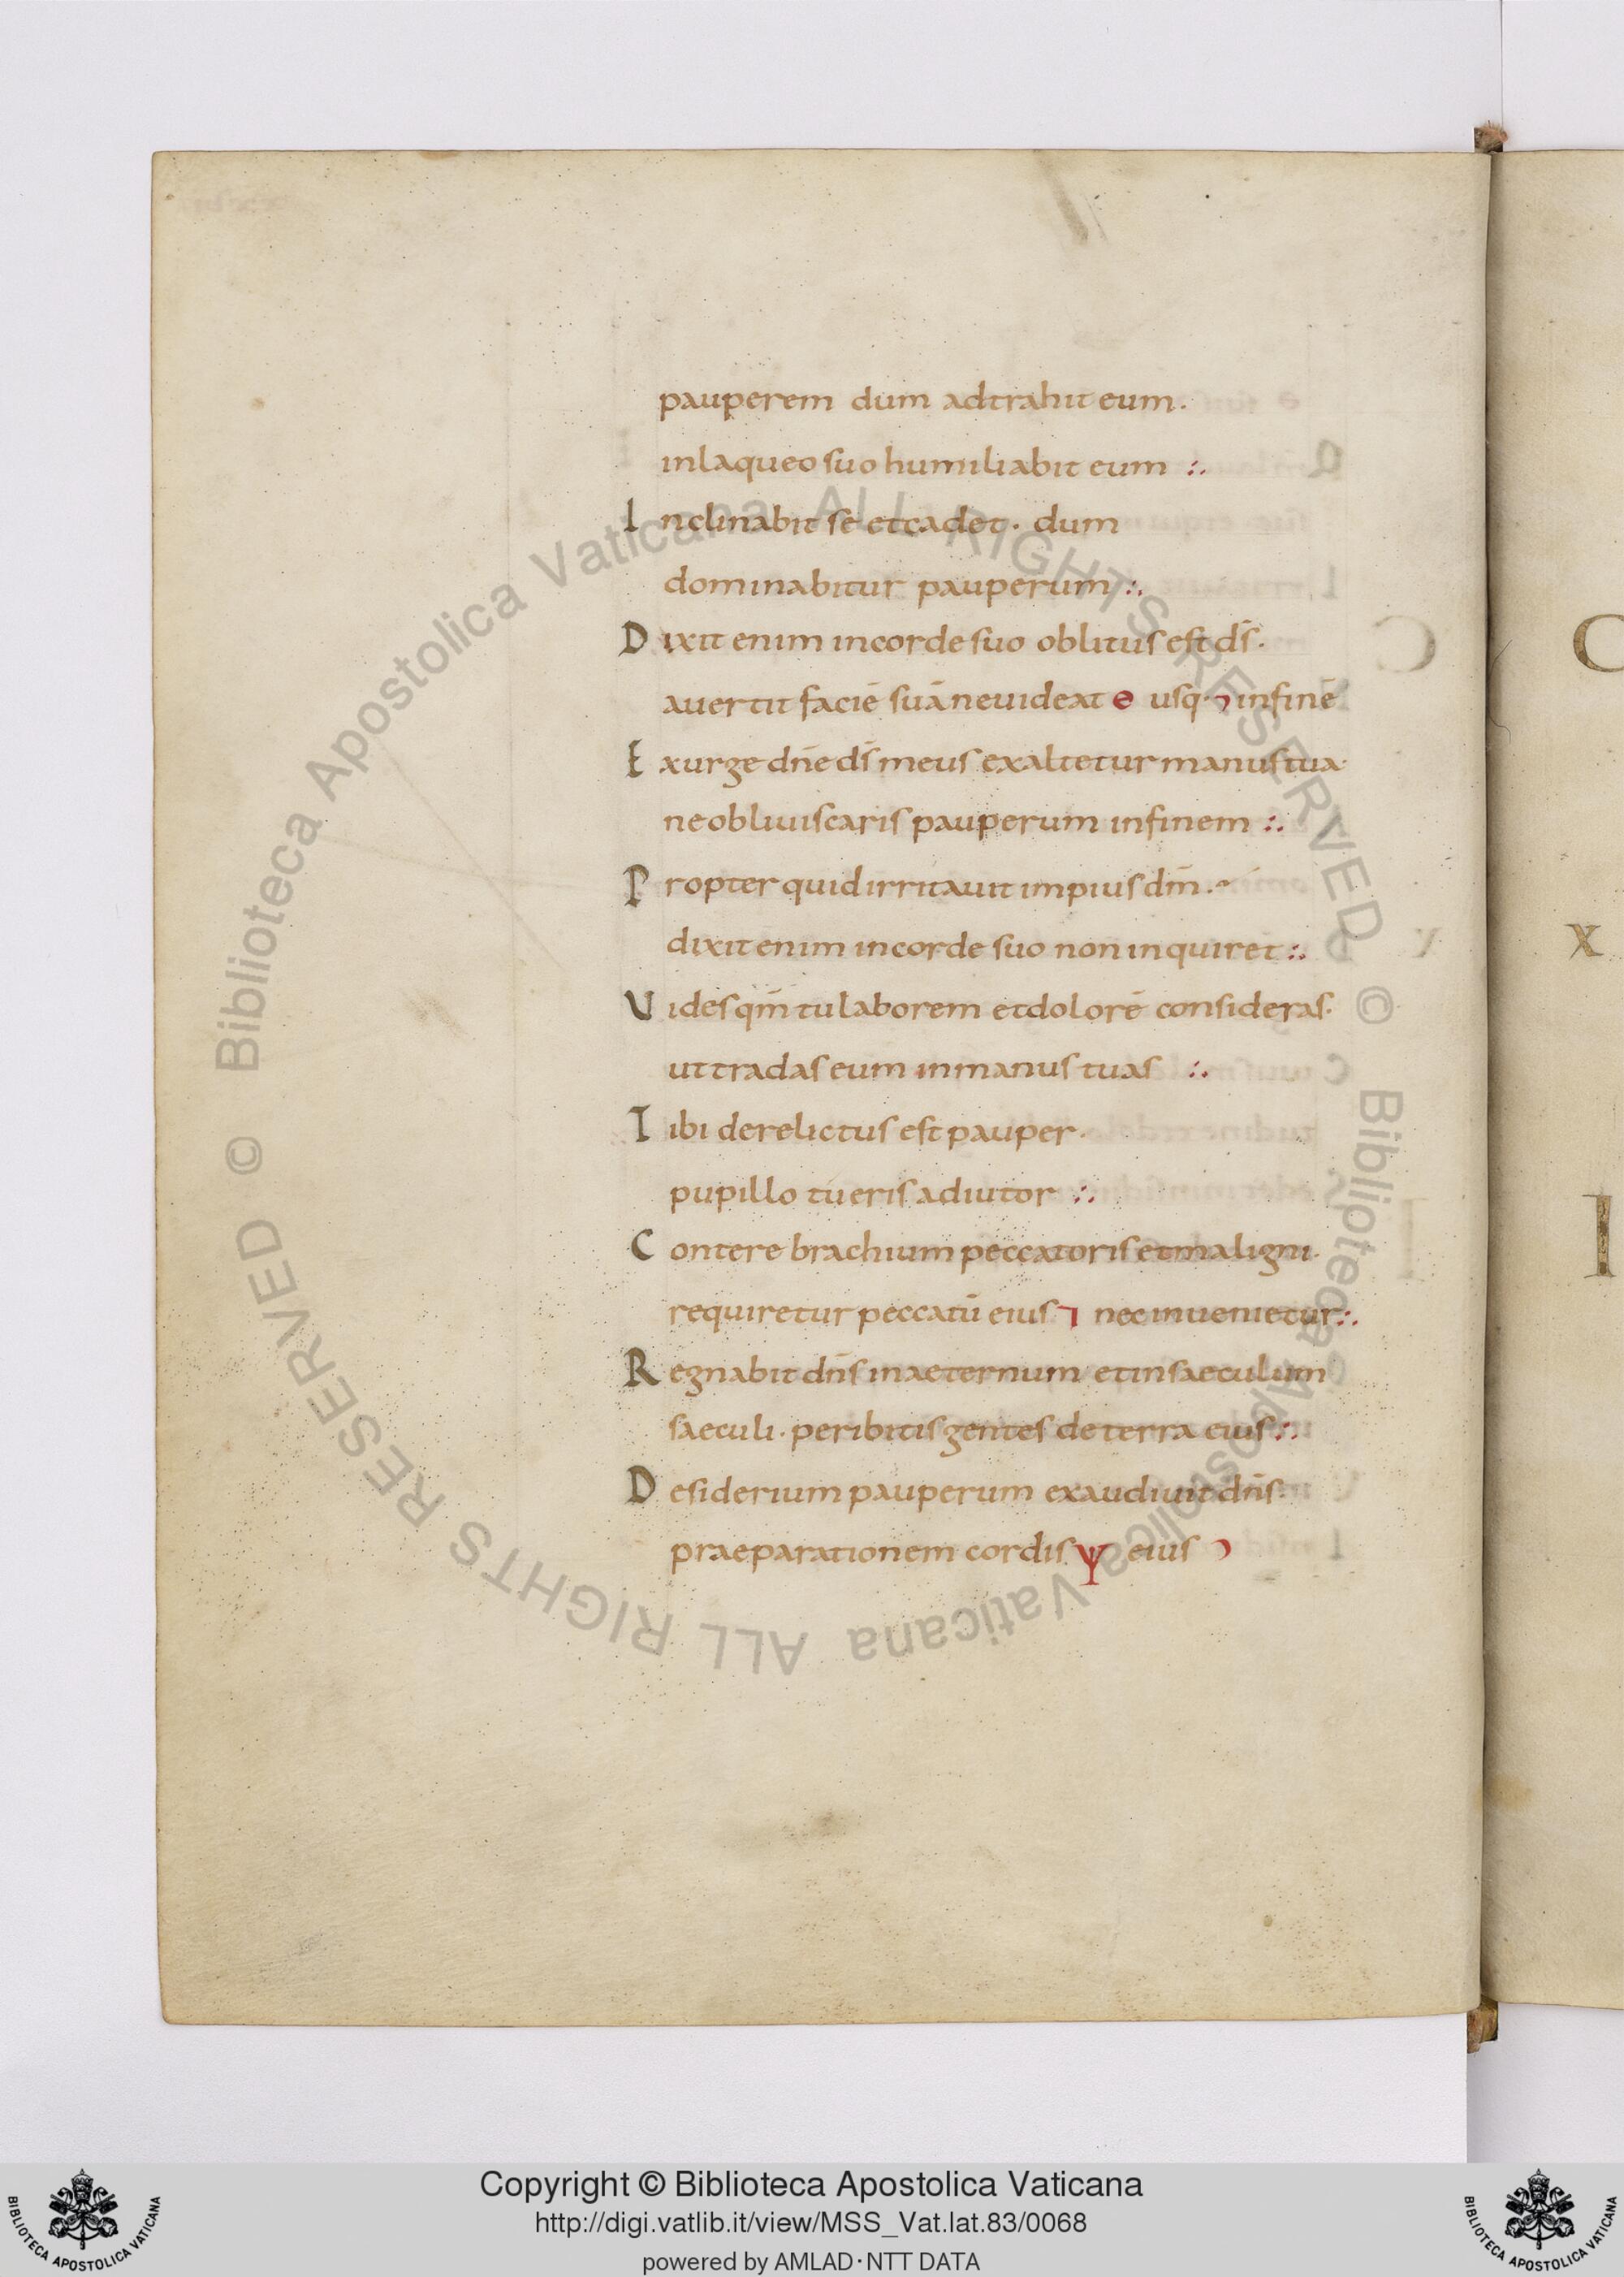 pauperem dum adtrahit eum.
inlaqueo suo humiliabit eum :.
Inclinabit se et cadet · dum
dominabitur pauperum :.
Dixit enim incorde suo oblitus est d̄s ·
avertit faciē suā ne videat e usq· ⁊ infinē
Exurge dn̄e d̄s meus exaltetur manus tua·
ne obliviscaris pauperum infinem :.
Propter quid irritavit impius dm̄ ·
dixit enim in corde suo non inquiret :.
Vides qm̄ tu laborem et dolorē consideras·
ut tradas eum in manus tuas :.
Tibi derelictus est pauper·
pupillo tu eris adiutor :.
Contere brachium peccatoris et maligni·
requiretur peccatū eius ⁊ nec invenietur:.
Regnabit dn̄s in aeternum et in saeculum
saeculi · peribitis gentes de terra eius :.
Desiderium pauperum exaudivit dn̄s·
praeparationem cordis ψ eius ͻ
C
X
I
© Biblioteca Apostolica Vaticana ALL RIGHTS RESERVED © Biblioteca Apostolica Vaticana ALL RIGHTS RESERVED
Copyright © Biblioteca Apostolica Vaticana
http://digi.vatlib.it/view/MSS_Vat.lat.83/0068
powered by AMLAD·NTT DATA
BIBLIOTECA APOSTOLICA VATICANA
BIBLIOTECA APOSTOLICA VATICANA